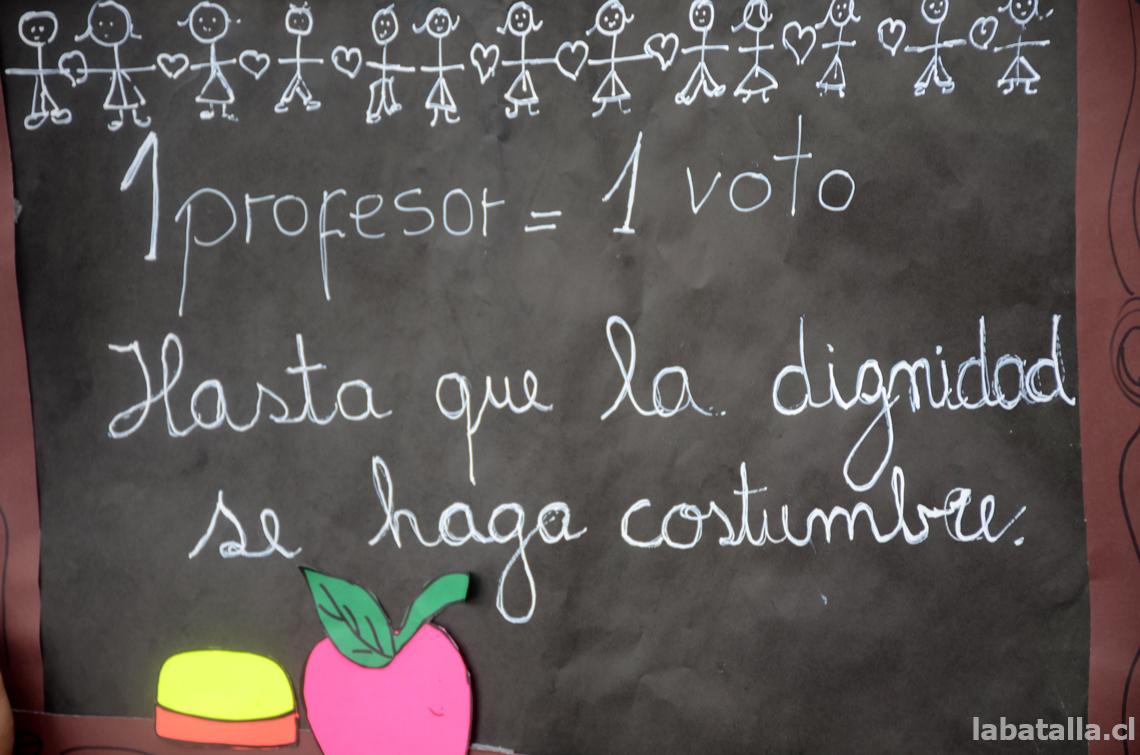 1 profesor = 1 voto
Hasta que la dignidad
se haga costumbre.
labatalla.cl